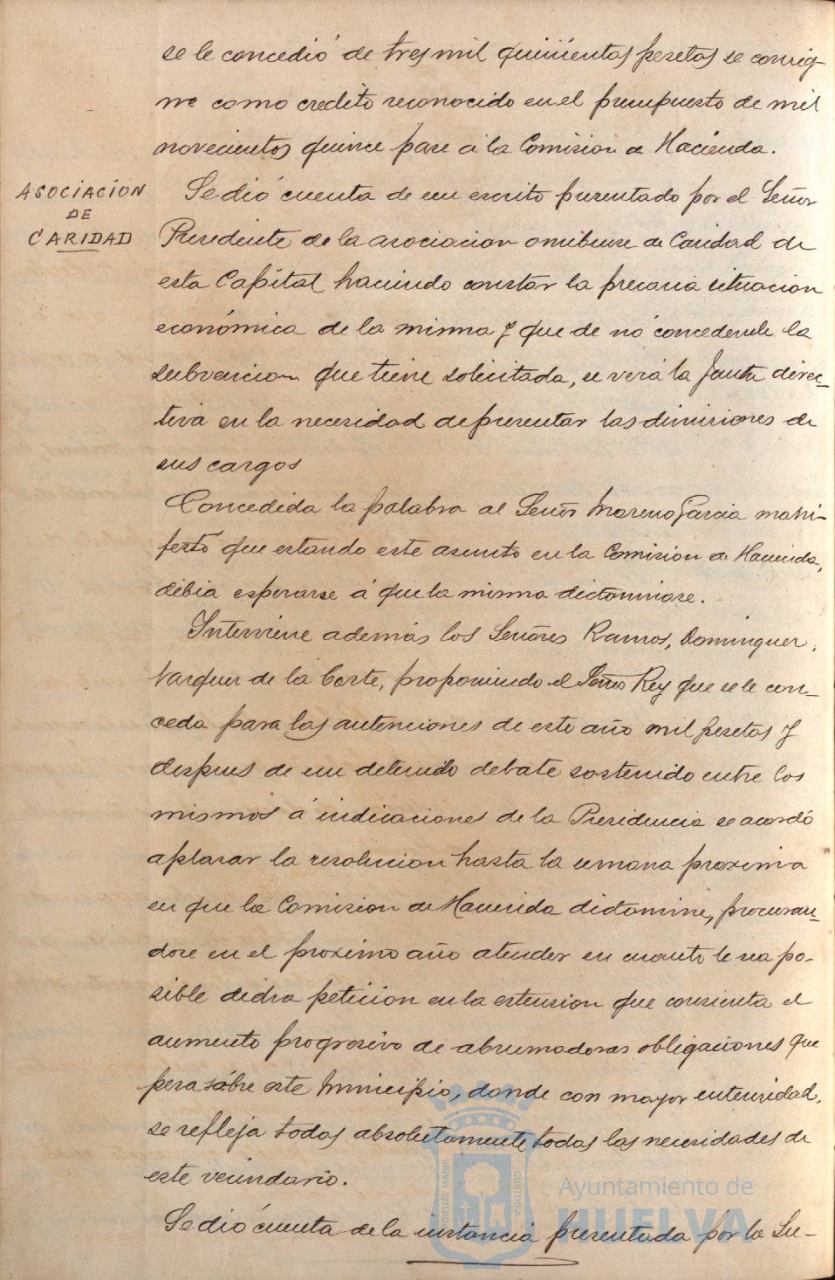 se le concedió de tres mil quinientas pesetas se consig-
ne como credito reconocido en el presupuesto de mil
novecientos quince pase á la Comision de Hacienda.
ASOCIACION
DE
CARIDAD
Se dió cuenta de un escrito presentado por el Señor
Presidente de la asociacion onubense de Caridad de
esta Capital haciendo constar la precaria situacion
económica de la misma y que de no concedersele la
subvencion que tiene solicitada, se verá la Junta direc-
tiva en la necesidad de presentar las dimisiones de
sus cargos
Concedida la palabra al Señor Moreno Garcia mani-
festó que estando este asunto en la Comision de Hacienda,
débia esperarse á que la misma dictaminase.
Interviene además los Señores Ramos, Dominguez,
Vazquez de la Corte, proponiendo el Señor Rey que se le con-
ceda para las antenciones de este año mil pesetas y
despues de un detenido debate sostenido entre los
mismos á indicaciones de la Presidencia se acordó
aplazar la resolucion hasta la semana proxima
en que la Comision de Hacienda dictamine, procuran-
dose en el proximo año atender en cuanto le sea po-
sible dicha peticion en la estension que consienta el
aumento progresivo de abrumadoras obligaciones que
pesa sóbre este Municipio, donde con mayor entensidad,
se refleja todas absolutamente todas las necesidades de
este vecindario.
Se dió cuenta de la instancia presentada por la Su-
Ayuntamiento de
HUELVA